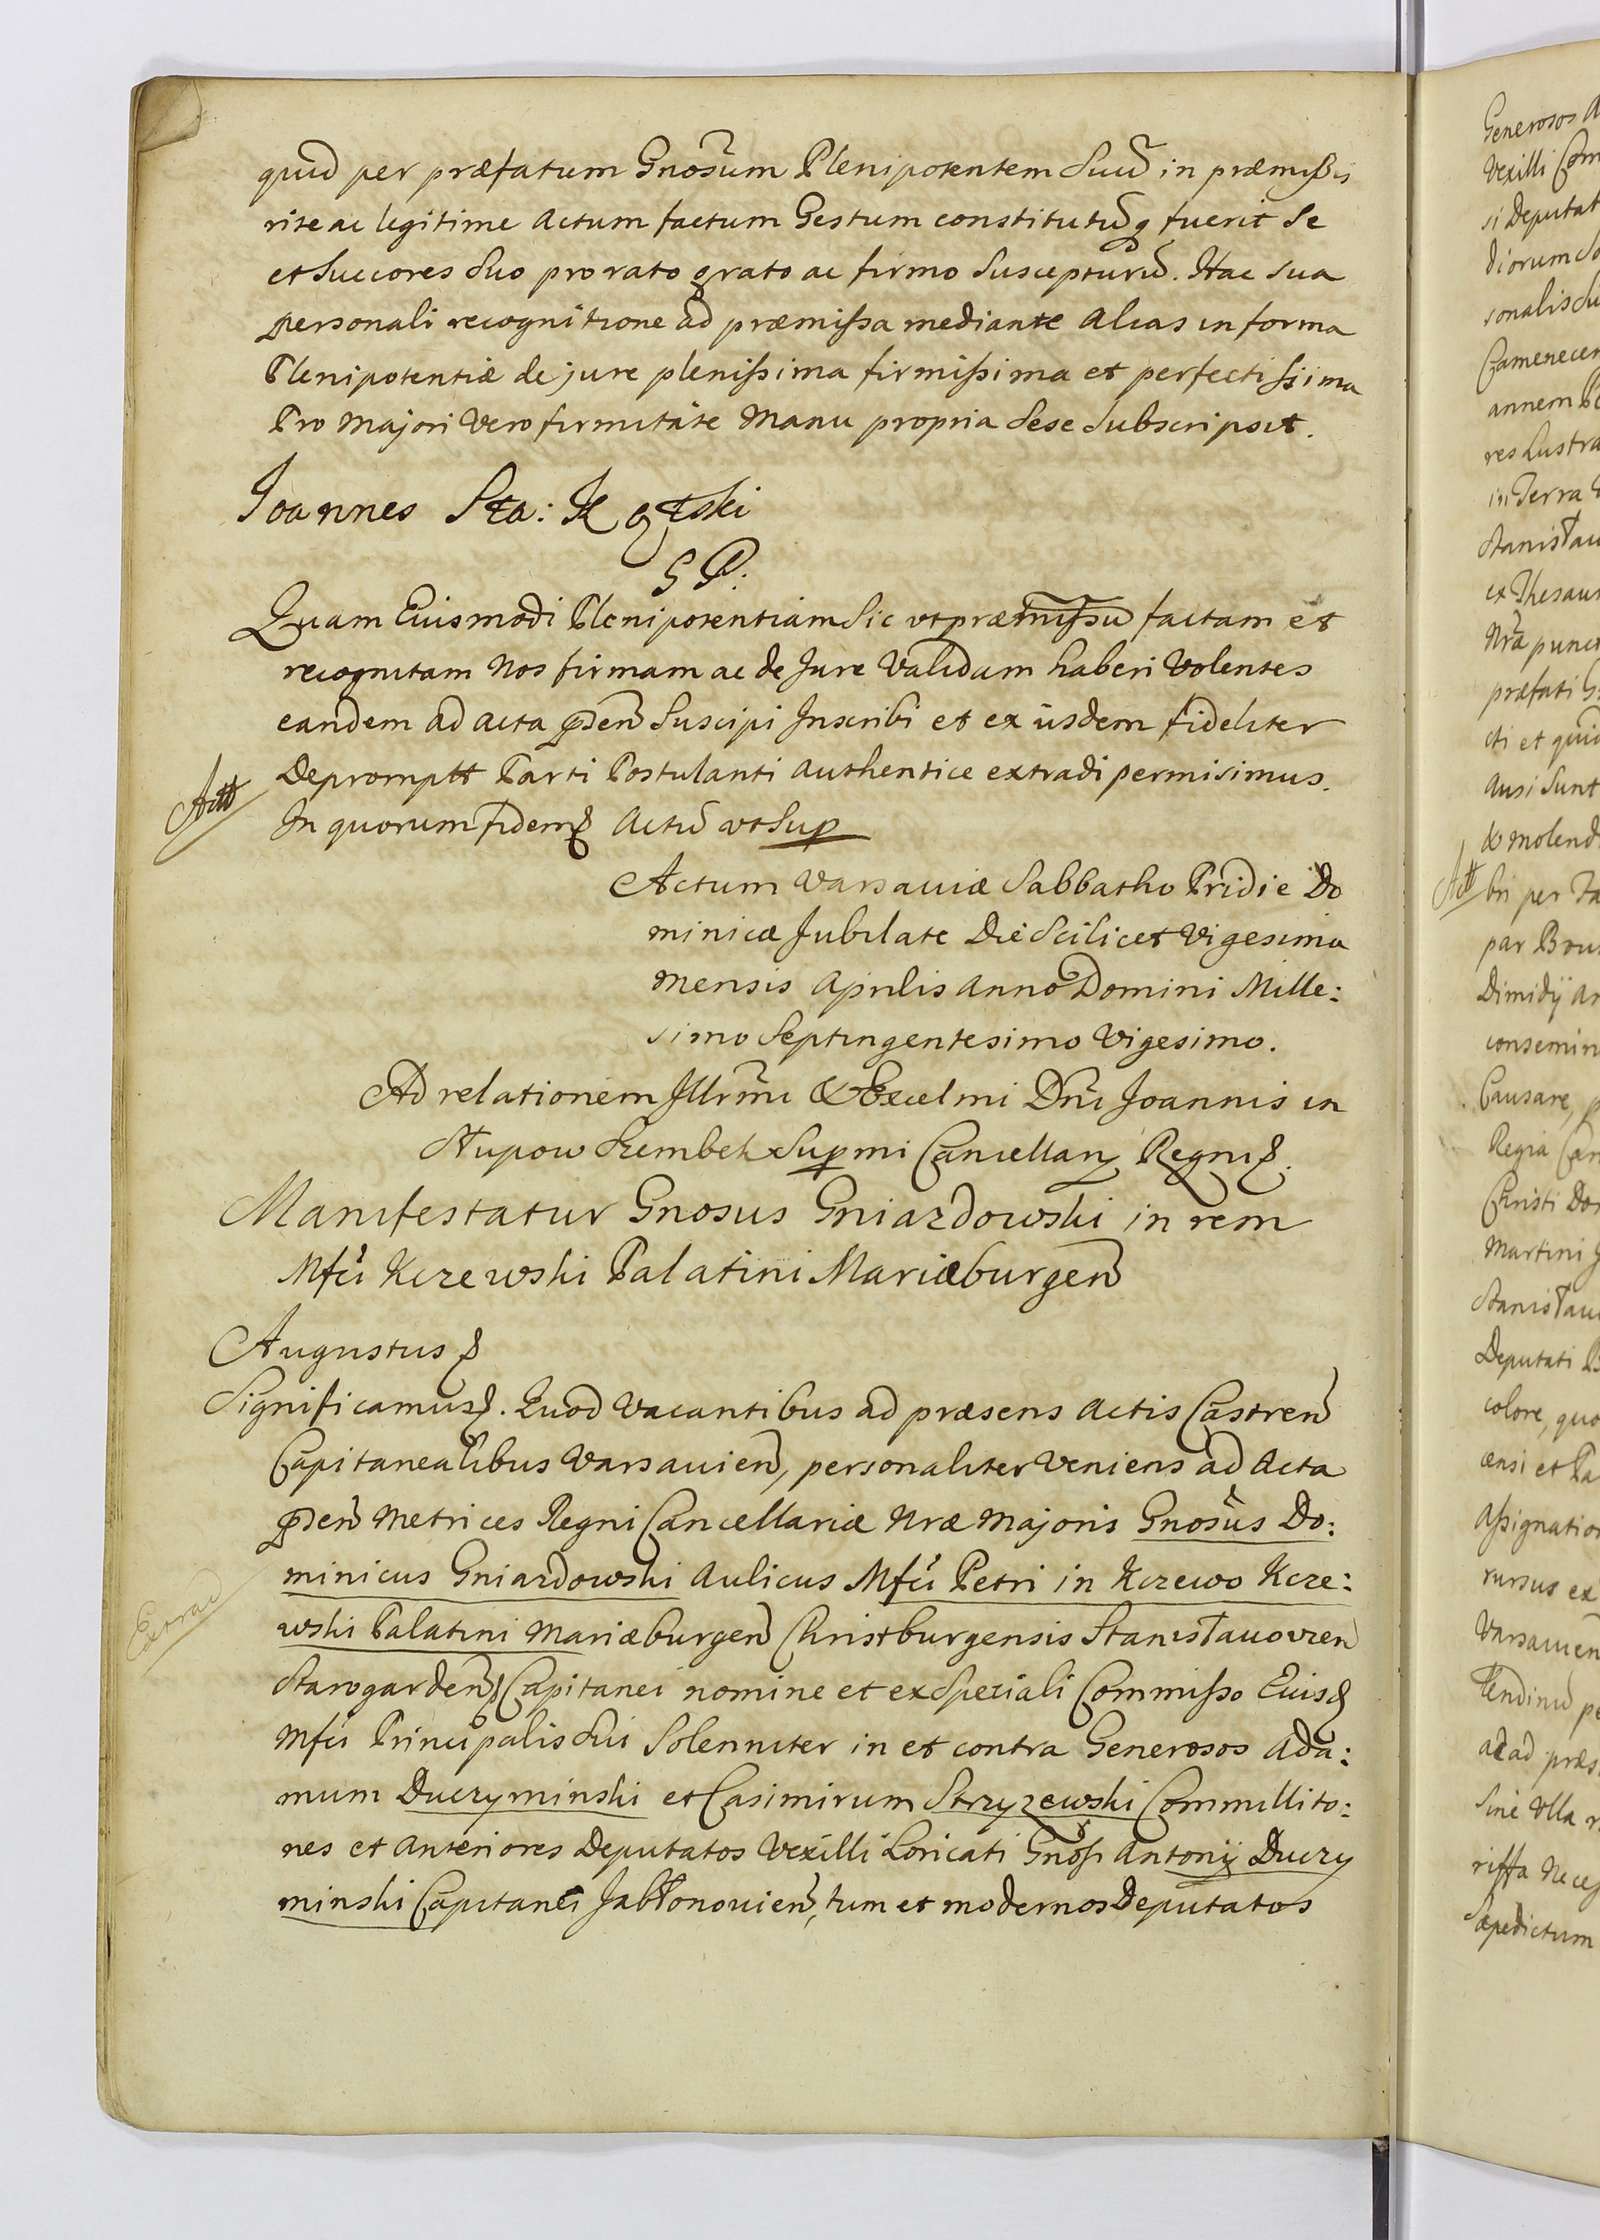 quid per præfatum Gnosum Plenipotentem Suũ in præmissis
rite ac legitime Actum factum Gestum constitutũq fuerit Se
et Succores Suo pro rato grato ac firmo Suscepturũ. Hac sua
personali recognitione ad præmissa mediante Alias in forma
Plenipotentiæ de jure plenissima firmissima et perfectissima
Pro Majori Vero firmitate Manu propria Sese Subscripsit.
Joannes Sta: Kątski
G P:
Quam Eiusmodi Plenipotentiam Sic ut præmissũ factam et
recognitam Nos firmam ac de Jure Validam haberi Volentes
eandem ad acta pñden Suscipi Inscribi et ex iisdem fideliter
Depromptt Parti Postulanti Authentice extradi permisimus.
Actt
In quorum fidem Actũ ut Sup
Actum Varsaviæ Sabbatho Pridie Do
minicæ Jubilate Die Scilicet Vigesima
mensis Aprilis Anno Domini Mille:
simo Septingentesimo Vigesimo.
Ad relationem Illrmi & Excelmi Dni Joannis in
Słupow Szembek Supmi Cancellarij Regni
Manifestatur Gnosus Gniazdowski in rem
Mfci Kczewski Palatini Mariæburgen
Augustus
Significamus. Quod Vacantibus ad præsens Actis Castren
Capitanealibus Varsavien, personaliter Veniens ad Acta
pñden Metrices Regni Cancellariæ Nræ Majoris Gnosus Do:
minicus Gniazdowski Aulicus Mfci Petri in Kczewo Kcze:
Extrad
wski Palatini Mariæburgen Christburgensis Stanisławovien
Starogarden Capitanei nomine et ex Speciali Commisso Eiusd
Mfci Principalis Sui Solenniter in et contra Generosos Ada:
mum Duczyminski et Casimirum Strzyzewski Commillito:
nes et Anteriores Deputatos Vexilli Loricati Gnosi Antonij Duczy
minski Capitanei Jabłonovien, tum et modernos Deputatos
Generosos
Vexilli Com
si Deputat
diorum So
sonalis Su
Camerecen
annem
res Lustra
in Terra
Stanisłau
ex Thesau
Nra punct
præfati
cti et quid
Ausi Sunt
& molend
Actt
bri per
par
Dimidij
consemin
Causare,
Regia Can
Christi Do
Martini
Stanisław
Deputati
colore, quo
ensi et Pa
Assignation
rursus ex
Varsavien
ac ad præs
Sine Ulla
Sæpedictum